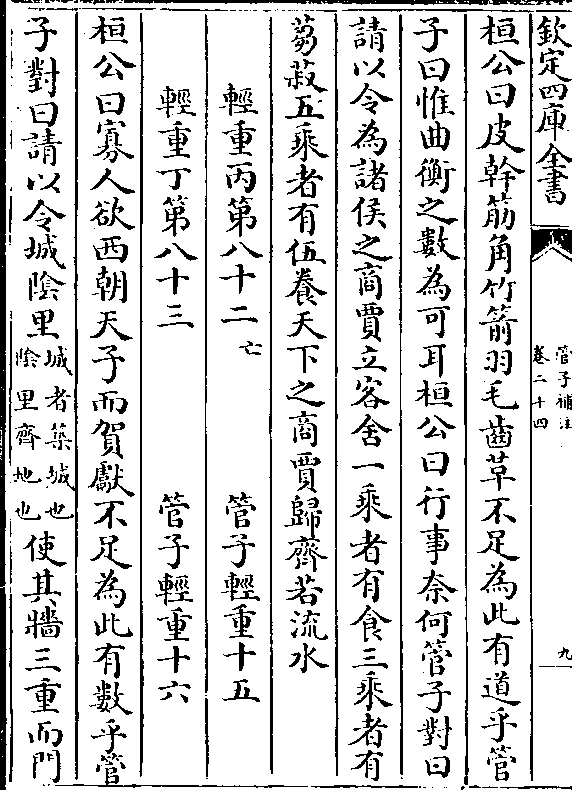 欽定四庫全書
管子補注
卷二十四
九
桓公曰皮幹筋角竹箭羽毛齒革不足為此有道乎管
子曰惟曲衡之數為可耳桓公曰行事奈何管子對曰
請以令為諸侯之商賈立客舍一乘者有食三乘者有
芻菽五乘者有伍養天下之商賈歸齊若流水
輕重丙第八十二亡 管子輕重十五
輕重丁第八十三 管子輕重十六
桓公曰寡人欲西朝天子而賀獻不足為此有數乎管
子對曰請以令城陰里城者築城也陰里齊地也使其牆三重而門